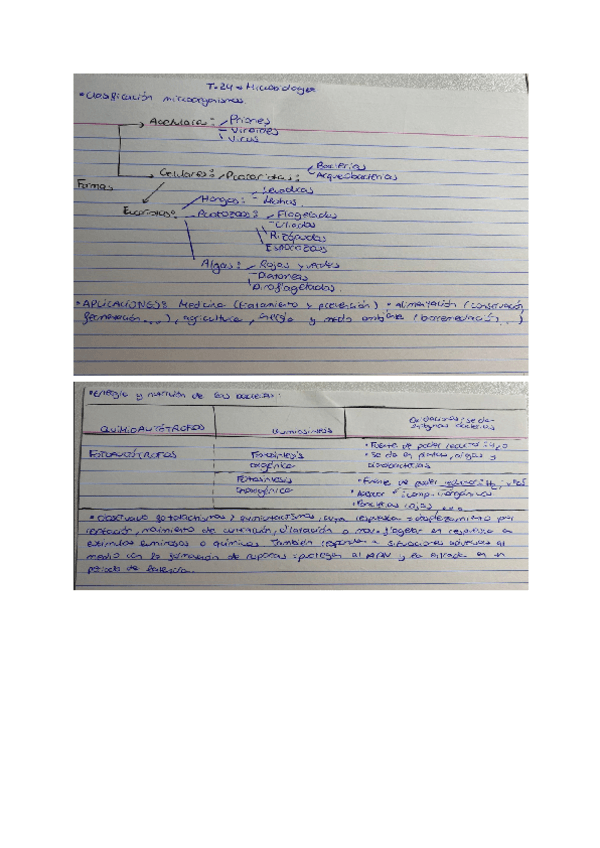 T.24 → Microbiología
• Clasificación microorganismos.
Acelular: Priones
Viroides
Virus
Celulares: Procariotas: Bacterias
Arqueobacterias
Formas
Eucariotas: Hongos: Levaduras
Mohos
Protozoos: Flagelados
Ciliados
Rizópodos
Esporozoos
Algas: Rojas y verdes
Diatomeas
Dinoflagelados
• APLICACIONES: Medicina (tratamiento y prevención) • alimentación (conservación,
fermentación...), agricultura, energía y medio ambiente (biorremediación...)
• Energía y nutrición de las bacterias:
QUIMIOAUTÓTROFOS
Quimiosíntesis
Oxidaciones; se da en
bacterias
FOTOAUTÓTROFOS
Fotosíntesis
oxigénica
• Fuente de poder reductor: H2O
• Se da en plantas, algas y
cianobacterias
Fotosíntesis
anoxigénica
• Fuente de poder reductor: H2, H2S
comp. inorgánicos
• fototactismos y quimiotactismos, cuya respuesta = desplazamiento por
movimiento de contracción, vibración o por flagelos en respuesta a
estímulos luminosos o químicos. También responden a situaciones adversas al
medio con la formación de esporas = protegen al ADN y la entrada en un
período de latencia.